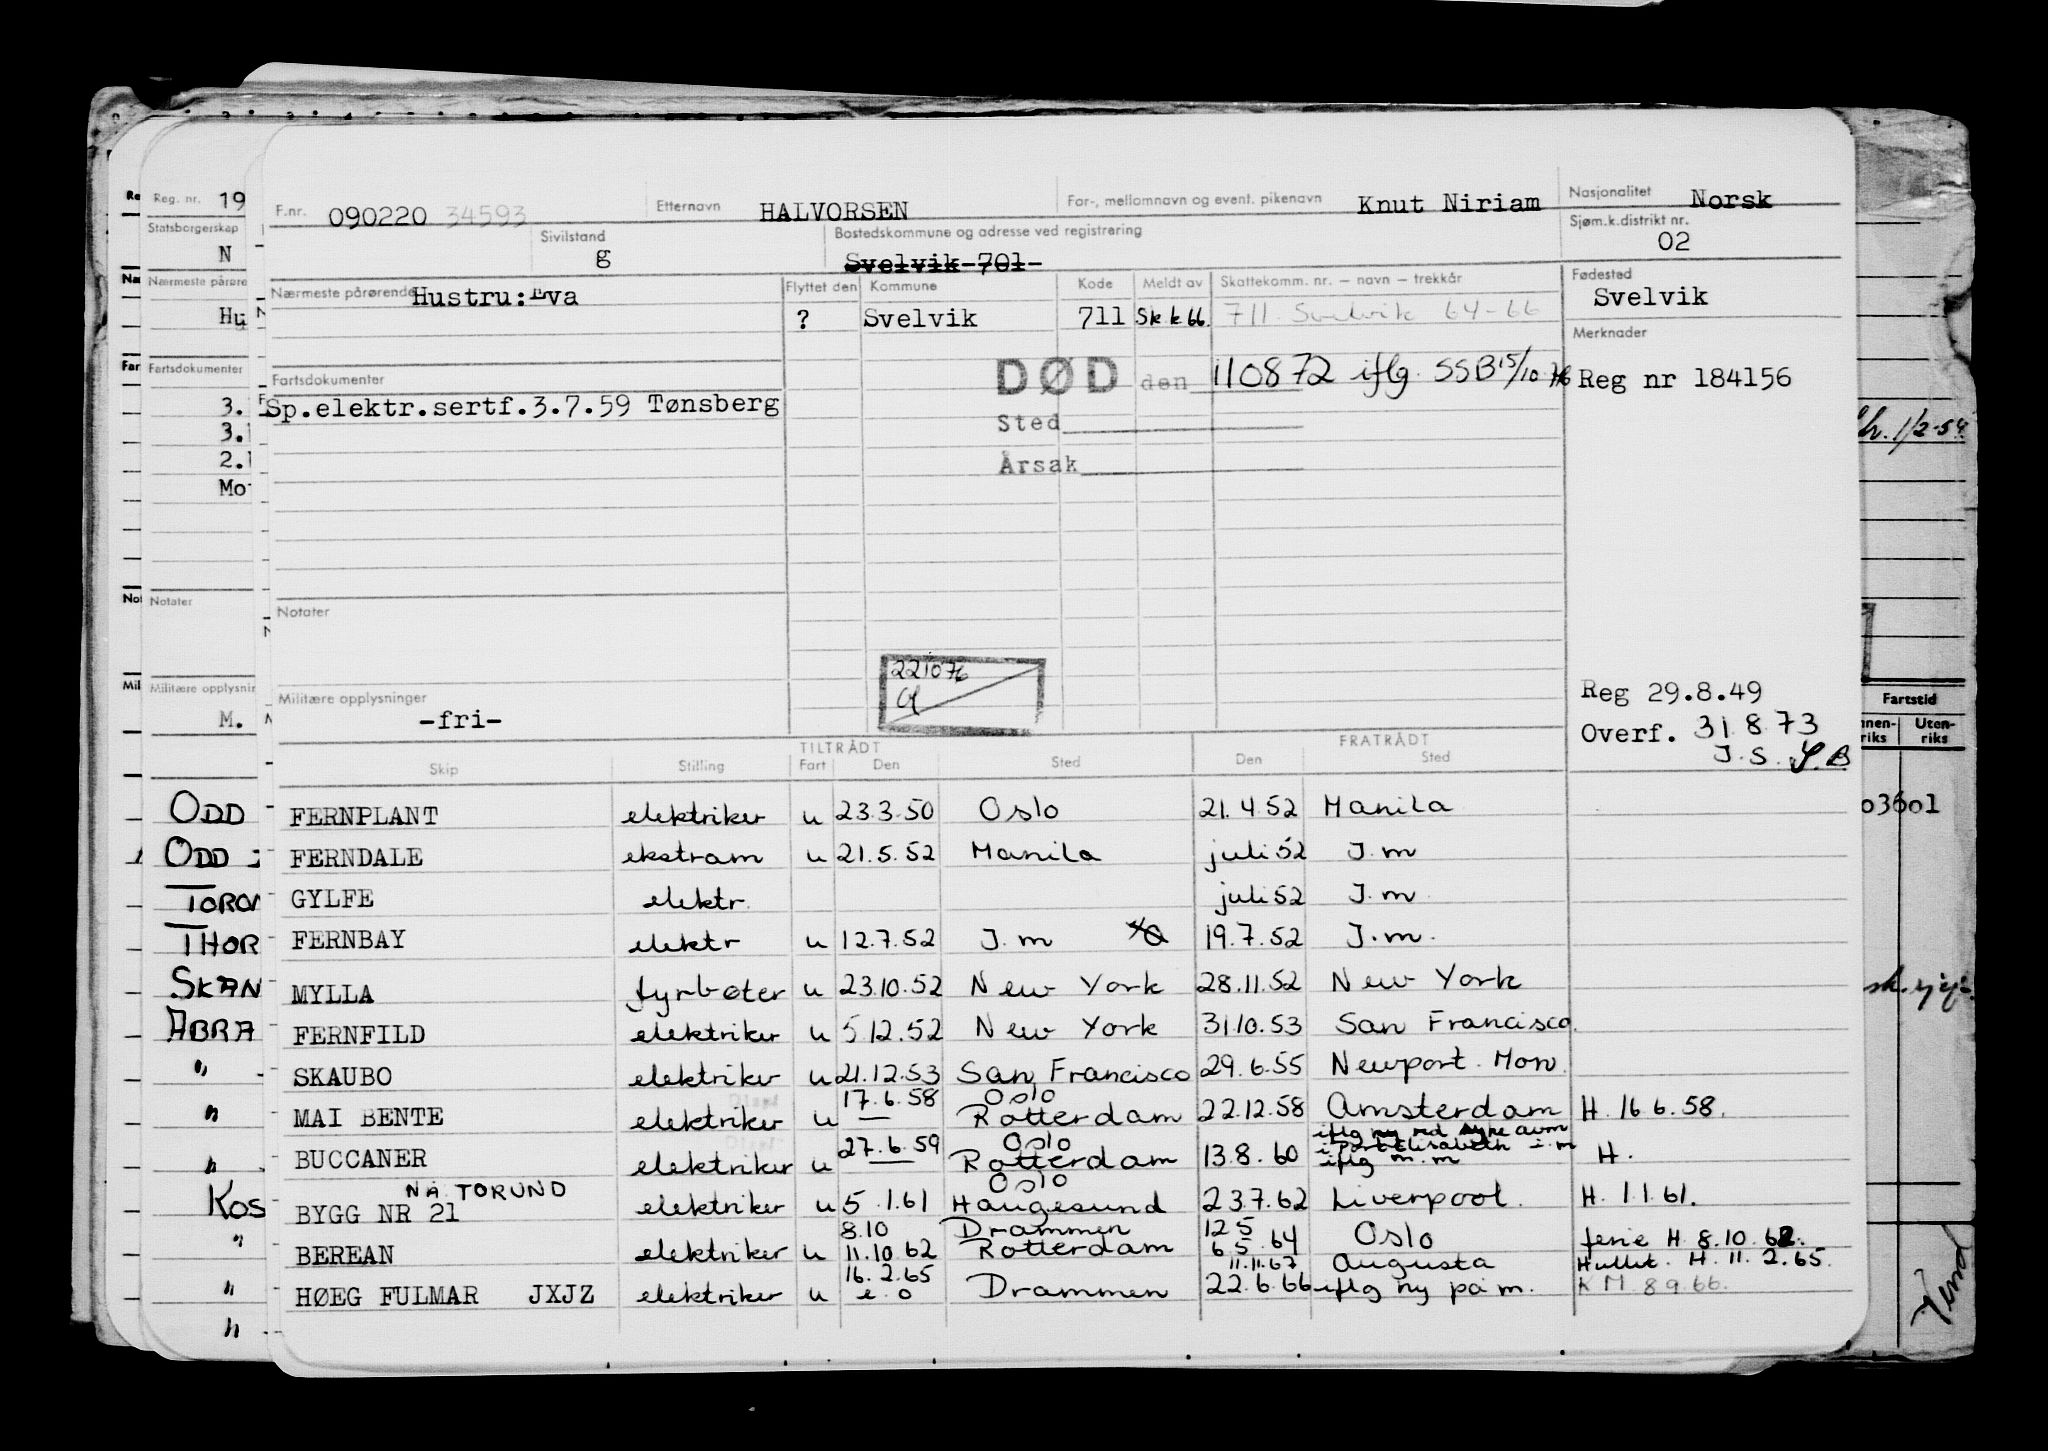 F.nr. 090220 34593 Etternavn HALVORSEN For-, mellomnavn og event. pikenavn Knut Niriam Nasjonalitet Norsk
Sivilstand g Bostedskommune og adresse ved registrering Svelvik-701- Sjøm.k.distrikt nr. 02
Nærmeste pårørende Hustru:Eva Flyttet den Kommune Kode Meldt av Skattekomm. nr. – navn – trekkår Fødested Svelvik
? Svelvik 711 Sk k 66. 711 Svelvik 64-66 Merknader
DØD den 110872 iflg. SSB 15/10 76 Reg nr 184156
Fartsdokumenter
Sp.elektr.sertf.3.7.59 Tønsberg
Sted
Årsak
Notater
221076
Militære opplysninger -fri-
Reg 29.8.49
Overf. 31.8.73
J.S.
TILTRÅDT FRATRÅDT
Skip Stilling Fart Den Sted Den Sted
FERNPLANT elektriker u 23.3.50 Oslo 21.4.52 Manila
FERNDALE ekstram u 21.5.52 Manila juli 52 J.m
GYLFE elektr. juli 52 J.m.
FERNBAY elektr u 12.7.52 J.m 19.7.52 J.m.
MYLLA fyrbøter u 23.10.52 New York 28.11.52 New York
FERNFILD elektriker u 5.12.52 New York 31.10.53 San Francisco.
SKAUBO elektriker u 21.12.53 San Francisco 29.6.55 Newport. Mon.
17.6.58 Oslo
MAI BENTE elektriker u — Rotterdam 22.12.58 Amsterdam H. 16 6.58.
27.6.59 Oslo iflg ny red
BUCCANER elektriker u — Rotterdam 13.8.60 i Port Elisabeth i.m iflg m.m H.
NÅ TORUND Oslo
BYGG NR 21 elektriker u 5.1.61 Haugesund 23.7.62 Liverpool. H. 1.1.61.
8.10 Drammen 12 5
BEREAN elektriker u 11.10.62 Rotterdam 6 5.64 Oslo ferie H 8.10.62.
16.2.65 11.11.67 Augusta H. 11.2.65.
HØEG FULMAR JXJZ elektriker u e.o Drammen 22.6.66 iflg ny på m. K M. 8 9.66.
Reg. nr. 19
Statsborgerskap
N
Nærmeste pårøre
Hu
Fartsdokumenter
3.
3.
2.
Mo
Notater
Militære opplysnin
M.
ODD
ODD
TORO
THOR
SKAN
ABRA
"
"
"
KOS
"
"
"
1/2-54
Fartstid
Uten-
riks riks
03601